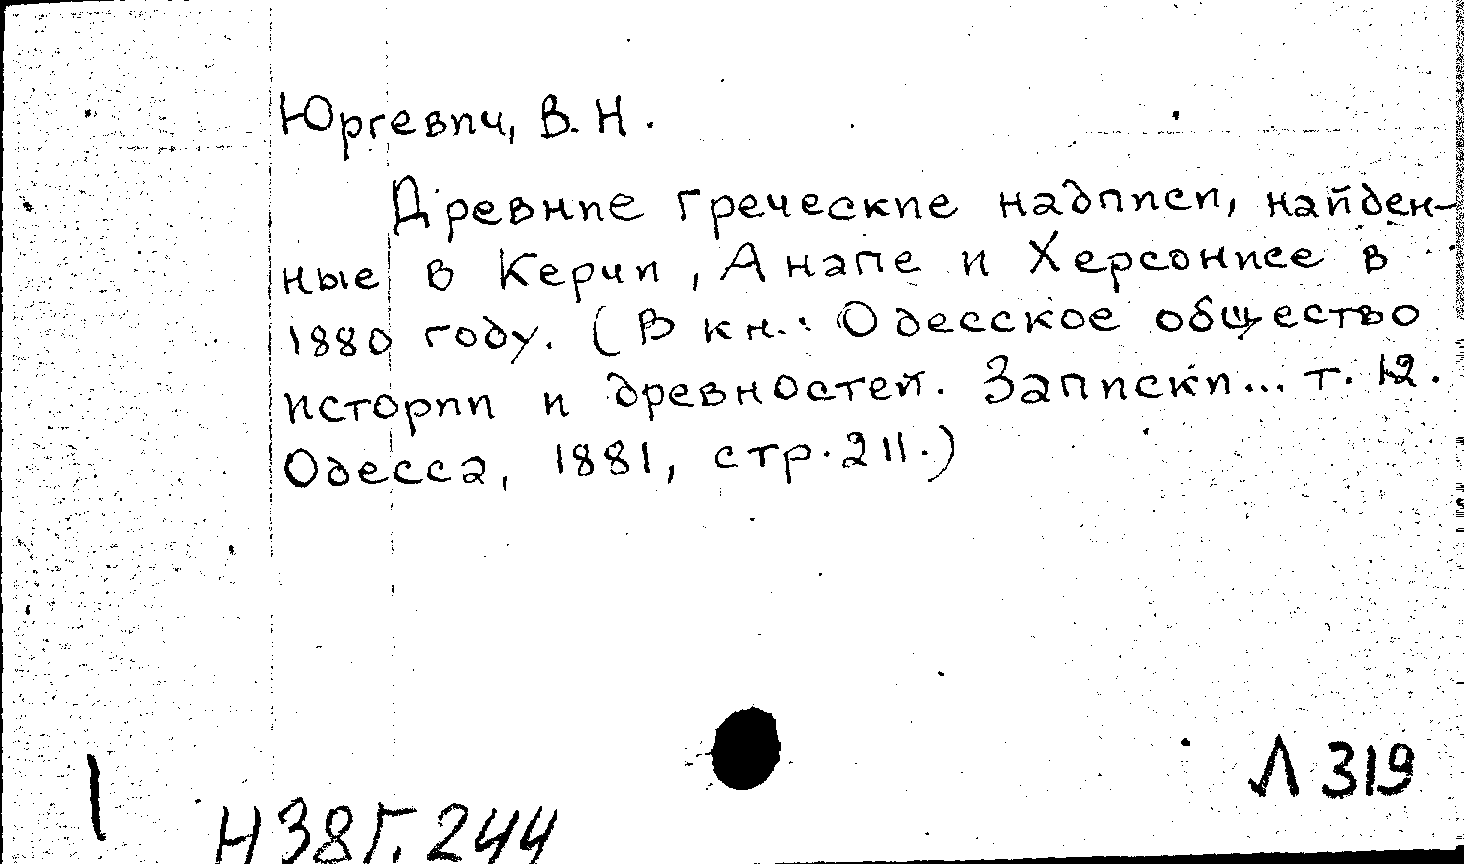 Юргевич, В. Н.
Древние греческие надписи, найден-
ные в Керчи, Анапе и Херсонисе в
1880 году. (В кн.: Одесское общество
истории и древностей. Записки... т. 12.
Одесса, 1881, стр. 211.)
Л 319
Н38Г.244